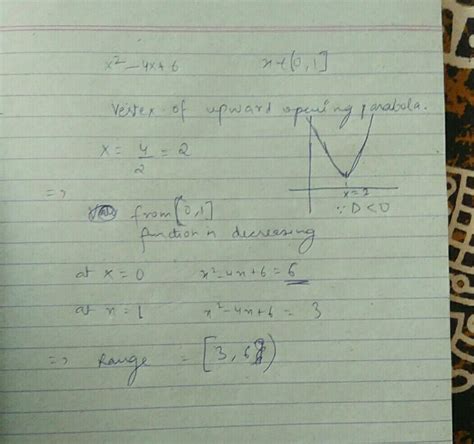 x²-4x+6 x∈(0,1]
Vertex of upward opening parabola.
x = 4/2 = 2
x=2
∵ D<0
=>
from [0,1]
function is decreasing
at x=0 x²-4x+6 = 6
at x=1 x²-4x+6 = 3
=> Range = [3,6)